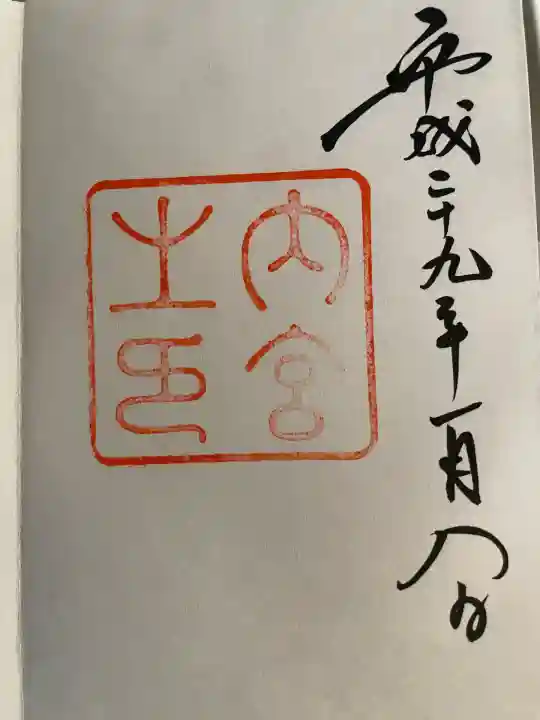 平成二十九年一月八日
内宮
之印